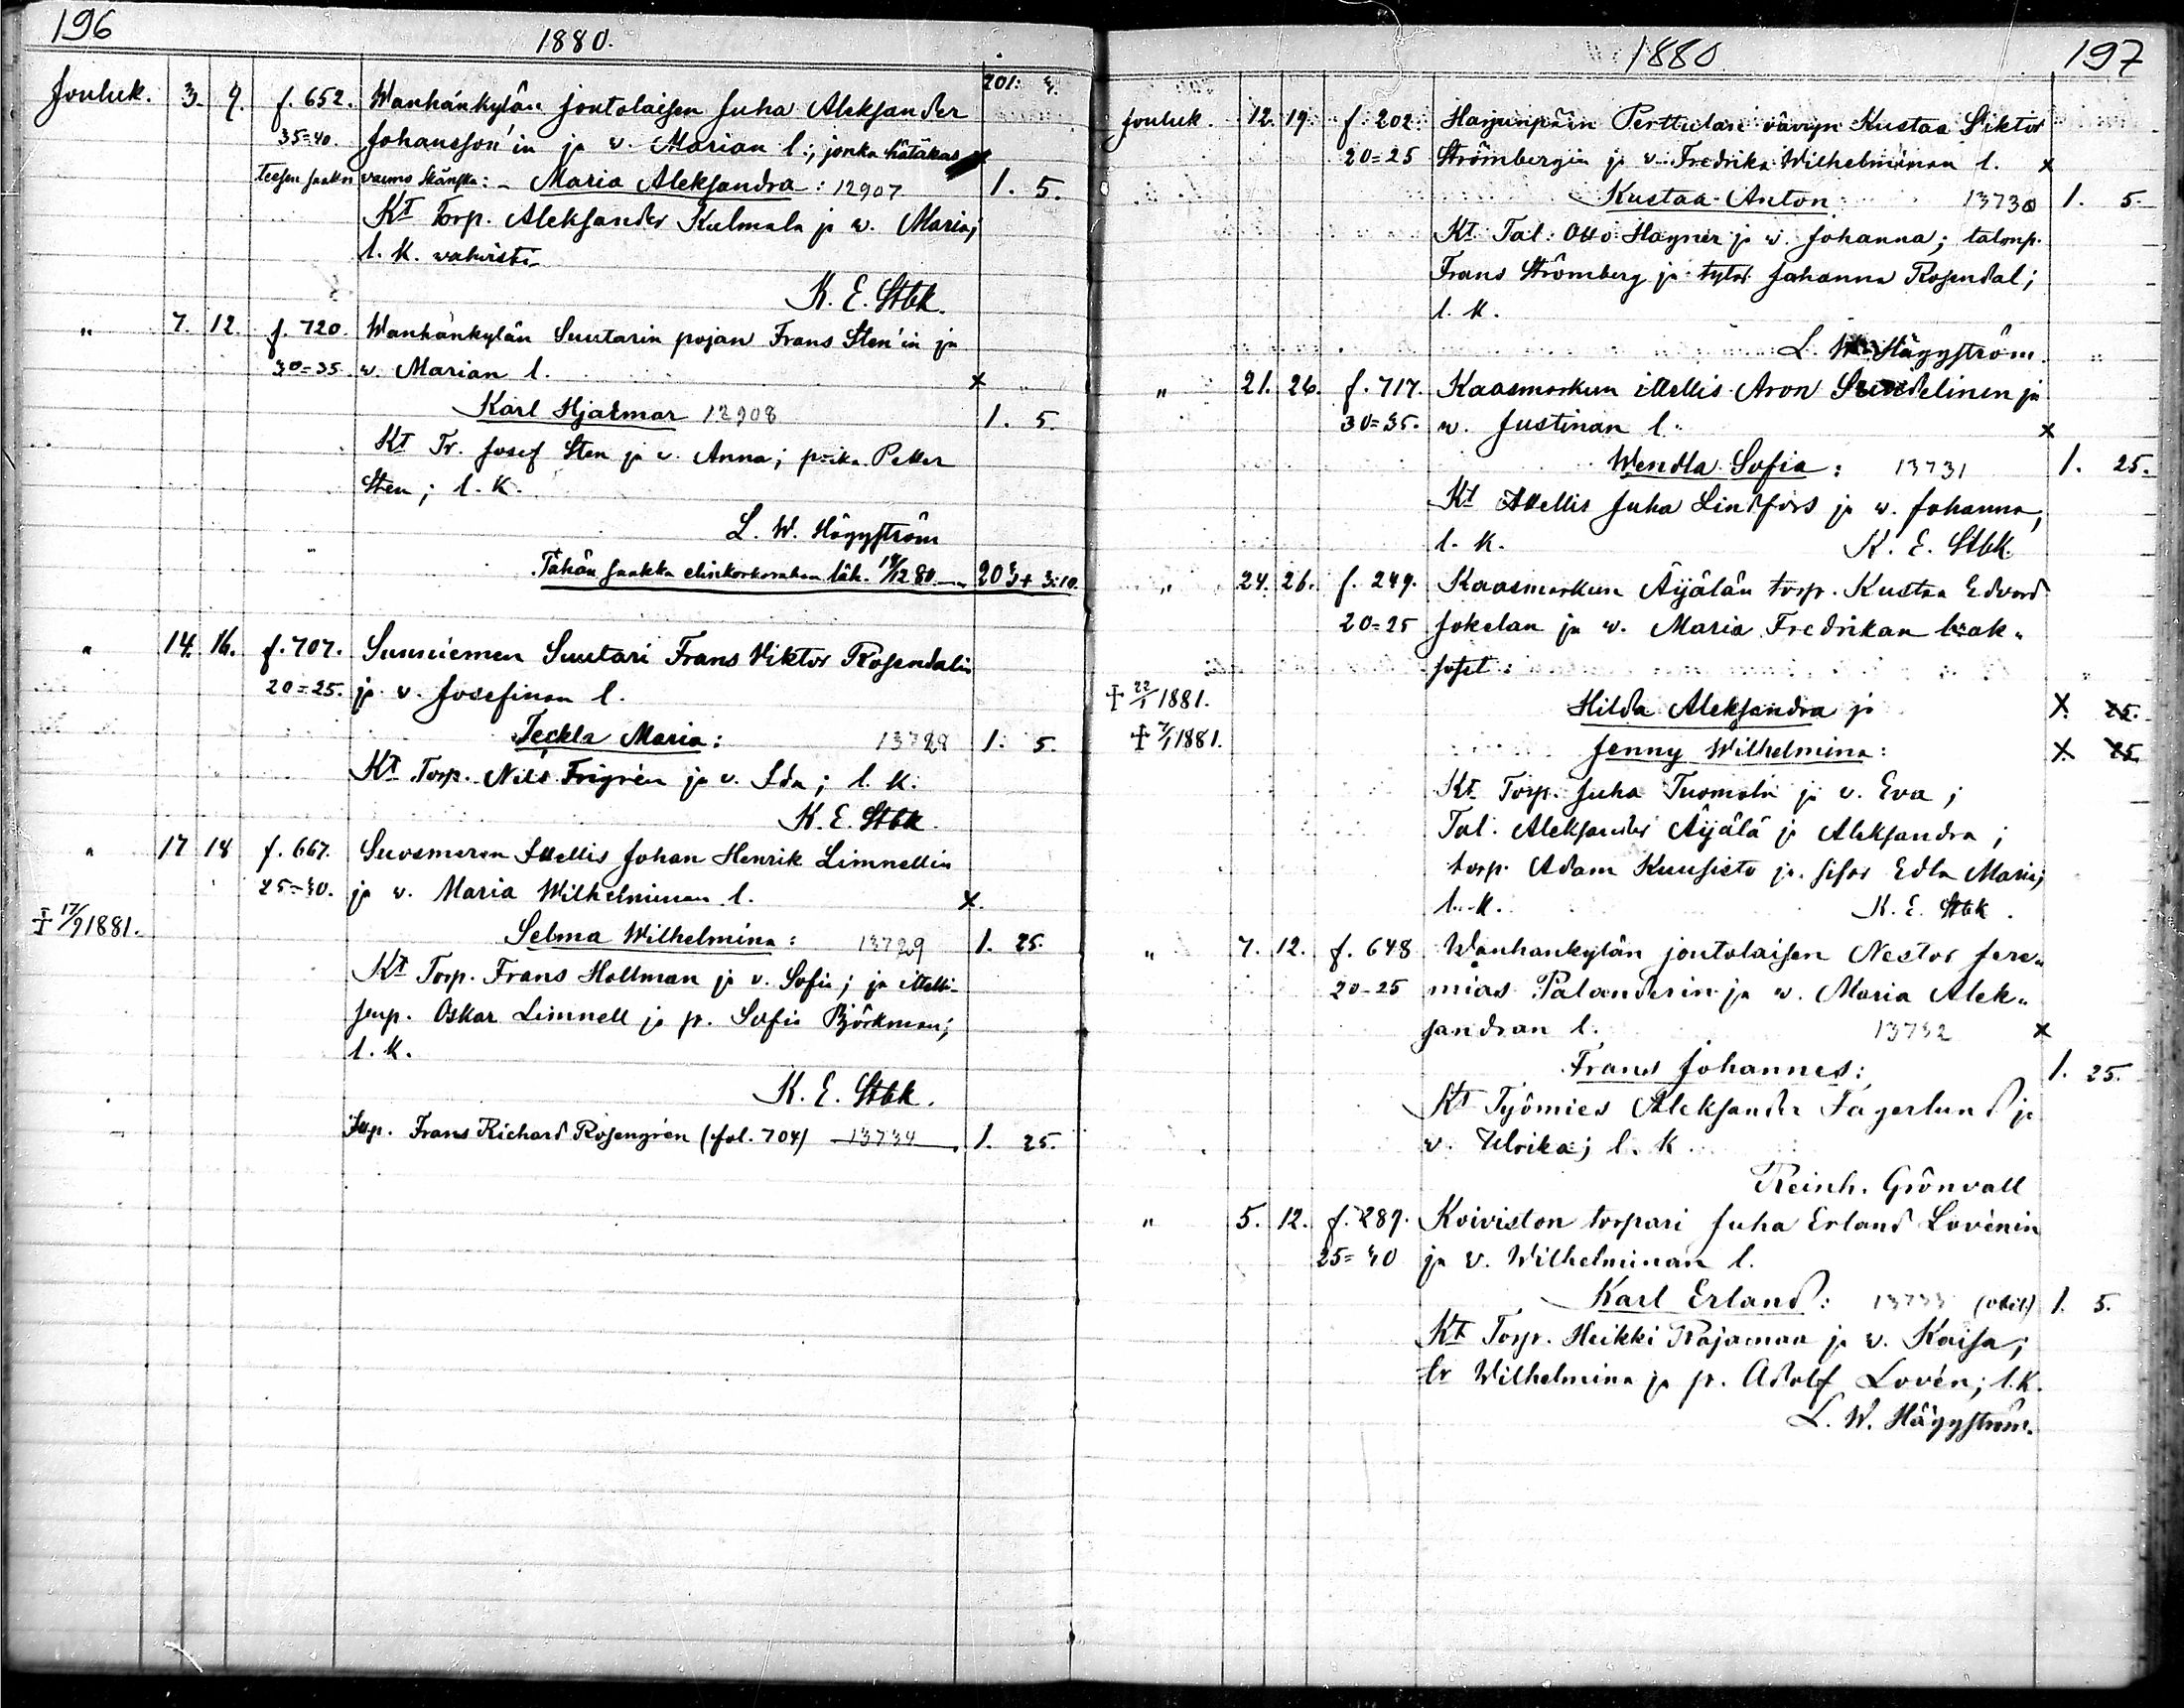 196
1880.
201:
Jouluk. 3. 9. f. 652. Wanhankylän joutolaisen Juha Aleksander
35=40. Johansson'in ja v. Marian l.; jonka hätäkas x
Maria Aleksandra: 12907 1. 5.
Kt Torp. Aleksander Kulmala ja w. Maria;
l. K. vahvisti
K. E. Stbk.
" 7. 12. f. 720. Wanhankylän Suutarin pojan Frans Sten'in ja
30=35. w. Marian l. x
Karl Hjalmar 12908 1. 5.
Kt Tr. Josef Sten ja v. Anna; poika Petter
Sten; l. K.
L. W. Häggström
Tähän saakka elinkorkorahan läh. 80.
" 14. 16. f. 707. Suuniemen Suutari Frans Viktor Rosendalin
20=25. ja v. Josefinan l.
Teckla Maria: 13728 1. 5.
Kt Torp. Nils Frigrén ja v. Ida; l. K.
K. E. Stbk.
" 17 18 f. 667. Suosmeren Itellis Johan Henrik Limnellin
25=30. ja w. Maria Wilhelminan l. x.
† 17/9 1881.
Selma Wilhelmina: 13729 1. 25.
Kt Torp. Frans Hollman ja v. Sofia; ja itelli-
senp. Oskar Limnell ja p. Sofia Björkman;
l. K.
K. E. Stbk.
Frans Richard Rosengrén (fol. 704) 13734 1. 25.
1880 197
Jouluk. 12. 19. f. 202. Harjunpään Perttulan vävyn Kustaa Viktor
20=25 Strömbergin ja v. Fredrika Wilhelminan l. x
Kustaa Anton 13730 1. 5.
Kt Tal. Otto Hagner ja v. Johanna; talonp.
Frans Strömberg ja tytär Johanna Rosendal;
l. K.
L. W. Häggström.
" 21. 26. f. 717. Kaasmarkun itellis Aron Sundelinen ja
30=35. w. Justinan l. x
Wendla Sofia: 13731 1. 25.
Kt Itellis Juha Lindfors ja w. Johanna,
l. K. K. E. Stbk.
" 24. 26. f. 249. Kaasmarkun Äijälän torp. Kustaa Edvard
20=25 Jokelan ja w. Maria Fredrikan kak„
soset:
† 22/1 1881. Hilda Aleksandra ja X. 25.
† 7/1 1881. Jenny Wilhelmina: X. 25.
Kt Torp. Juha Tuomola ja v. Eva;
Tal. Aleksander Äijälä ja Aleksandra;
torp. Adam Kuusisto ja sisar Edla Maria;
l. K. K. E. Stbk.
" 7. 12. f. 648 Wanhankylän joutolaisen Nestor Jere„
20-25 mias Palanderin ja w. Maria Alek„
sandran l. 13732 x
Frans Johannes: 1. 25.
Kt Työmies Aleksander Fagerlund ja
v. Ulrika; l. K.
Reinh. Grönvall
" 5. 12. f. 289. Koiviston torpari Juha Erland Lovénin
25=30 ja v. Wilhelminan l.
Karl Erland: 13733 1. 5.
Kt Torp. Heikki Rajamaa ja v. Kaisa;
tr Wilhelmina ja p. Adolf Lovén; l. K.
L. W. Häggström.